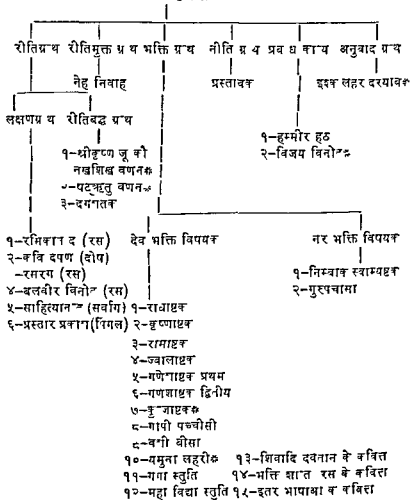 रीतिग्रथ रीतिमुक्त ग्रथ भक्ति ग्रथ नीति ग्रथ प्रबधकाय अनुवाद ग्रथ
नेह निवाह प्रस्तावक इश्क लहर दरयावक
लक्षणग्रथ रीतिबद्ध ग्रथ
१-श्रीकृष्ण जू कौ
नखशिख वणन
२-षटऋतु वणन
३-दगशतक
१-हम्मीर हठ
२-विजय विनोद
१-रसिकानद (रस)
२-कवि दपण (दोष)
-रसरग (रस)
४-बलवीर विनोद (रस)
५-साहित्यानद (सर्वाग)
६-प्रस्तार प्रकाश (पिगल)
देव भक्ति विषयक
नर भक्ति विषयक
१-निम्बाक स्वाम्यष्टक
२-गुरुपचासा
१-राधाष्टक
२-कृष्णाष्टक
३-रामाष्टक
४-ज्वालाष्टक
५-गणेशाष्टक प्रथम
६-गणशाष्टक द्वितीय
७-कुजाष्टक
८-गापी पच्चीसी
९-वशी वीसा
१०-यमुना लहरी
११-गगा स्तुति
१२-महा विद्या स्तुति
१३-शिवादि दवतान के कवित्त
१४-भक्ति शात रस के कवित्त
१५-इतर भाषाआ क कवित्त